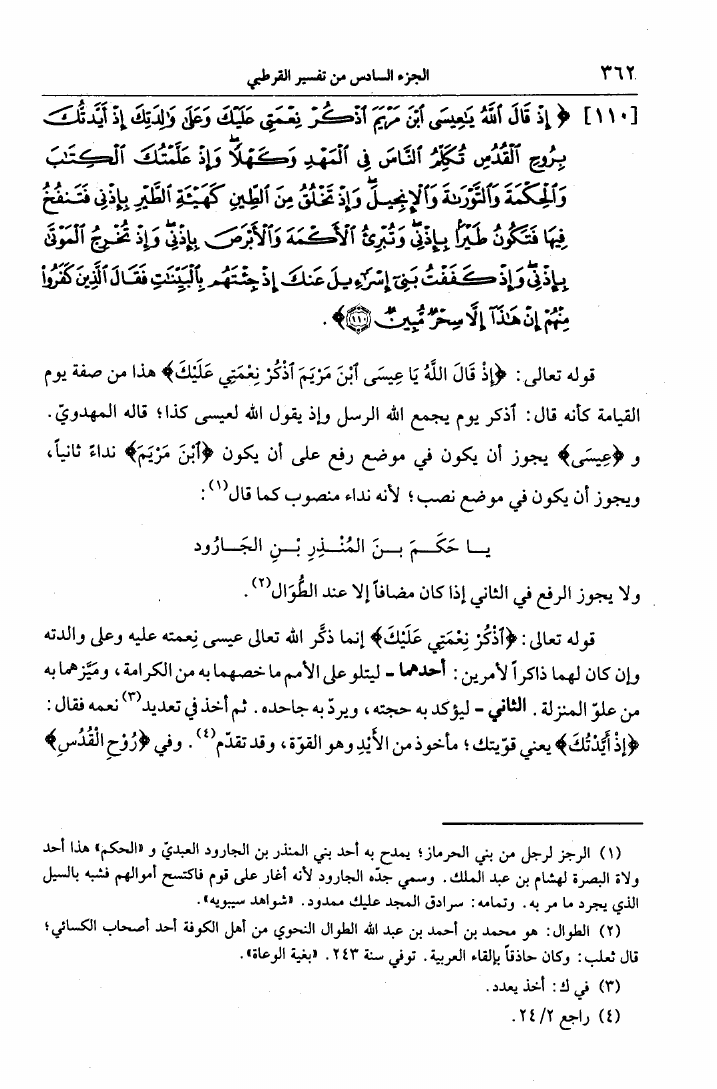 ٣٦٢ الجزء السادس من تفسير القرطبي
[١١٠] ﴿ إِذْ قَالَ ٱللَّهُ يَـٰعِيسَى ٱبْنَ مَرْيَمَ ٱذْكُرْ نِعْمَتِى عَلَيْكَ وَعَلَىٰ وَٰلِدَتِكَ إِذْ أَيَّدتُّكَ
بِرُوحِ ٱلْقُدُسِ تُكَلِّمُ ٱلنَّاسَ فِى ٱلْمَهْدِ وَكَهْلًاۖ وَإِذْ عَلَّمْتُكَ ٱلْكِتَـٰبَ
وَٱلْحِكْمَةَ وَٱلتَّوْرَىٰةَ وَٱلْإِنجِيلَۖ وَإِذْ تَخْلُقُ مِنَ ٱلطِّينِ كَهَيْـَٔةِ ٱلطَّيْرِ بِإِذْنِى فَتَنفُخُ
فِيهَا فَتَكُونُ طَيْرًۢا بِإِذْنِىۖ وَتُبْرِئُ ٱلْأَكْمَهَ وَٱلْأَبْرَصَ بِإِذْنِىۖ وَإِذْ تُخْرِجُ ٱلْمَوْتَىٰ
بِإِذْنِىۖ وَإِذْ كَفَفْتُ بَنِىٓ إِسْرَٰٓءِيلَ عَنكَ إِذْ جِئْتَهُم بِٱلْبَيِّنَـٰتِ فَقَالَ ٱلَّذِينَ كَفَرُوا۟
مِنْهُمْ إِنْ هَـٰذَآ إِلَّا سِحْرٌ مُّبِينٌ ١١٠﴾ .
قوله تعالى: ﴿إِذْ قَالَ اللَّهُ يَا عِيسَى ٱبْنَ مَرْيَمَ ٱذْكُرْ نِعْمَتِي عَلَيْكَ﴾ هذا من صفة يوم
القيامة كأنه قال: ٱذكر يوم يجمع الله الرسل وإذ يقول الله لعيسى كذا؛ قاله المهدويّ.
و ﴿عِيسَى﴾ يجوز أن يكون في موضع رفع على أن يكون ﴿ٱبْنَ مَرْيَمَ﴾ نداءً ثانياً،
ويجوز أن يكون في موضع نصب؛ لأنه نداء منصوب كما قال(١):
يــا حَكَــمَ بــنَ المُنْــذِرِ بْــنِ الجَــارُود
ولا يجوز الرفع في الثاني إذا كان مضافاً إلا عند الطُّوَال(٢).
قوله تعالى: ﴿ٱذْكُرْ نِعْمَتِي عَلَيْكَ﴾ إنما ذكَّر الله تعالى عيسى نِعمته عليه وعلى والدته
وإن كان لهما ذاكراً لأمرين: أحدهما - ليتلو على الأمم ما خصهما به من الكرامة، وميَّزهما به
من علوّ المنزلة. الثاني - ليؤكد به حجته، ويردّ به جاحده. ثم أخذ في تعديد(٣) نعمه فقال:
﴿إِذْ أَيَّدْتُكَ﴾ يعني قوّيتك؛ مأخوذ من الأَيْدِ وهو القوّة، وقد تقدّم(٤). وفي ﴿رُوْحِ الْقُدُسِ﴾
(١) الرجز لرجل من بني الحرماز؛ يمدح به أحد بني المنذر بن الجارود العبديّ و «الحكم» هذا أحد
ولاة البصرة لهشام بن عبد الملك. وسمي جدّه الجارود لأنه أغار على قوم فاكتسح أموالهم فشبه بالسيل
الذي يجرد ما مر به. وتمامه: سرادق المجد عليك ممدود. «شواهد سيبويه».
(٢) الطوال: هو محمد بن أحمد بن عبد الله الطوال النحوي من أهل الكوفة أحد أصحاب الكسائي؛
قال ثعلب: وكان حاذقاً بإلقاء العربية. توفي سنة ٢٤٣. «بغية الوعاة».
(٣) في ك: أخذ يعدد.
(٤) راجع ٢٤/٢.